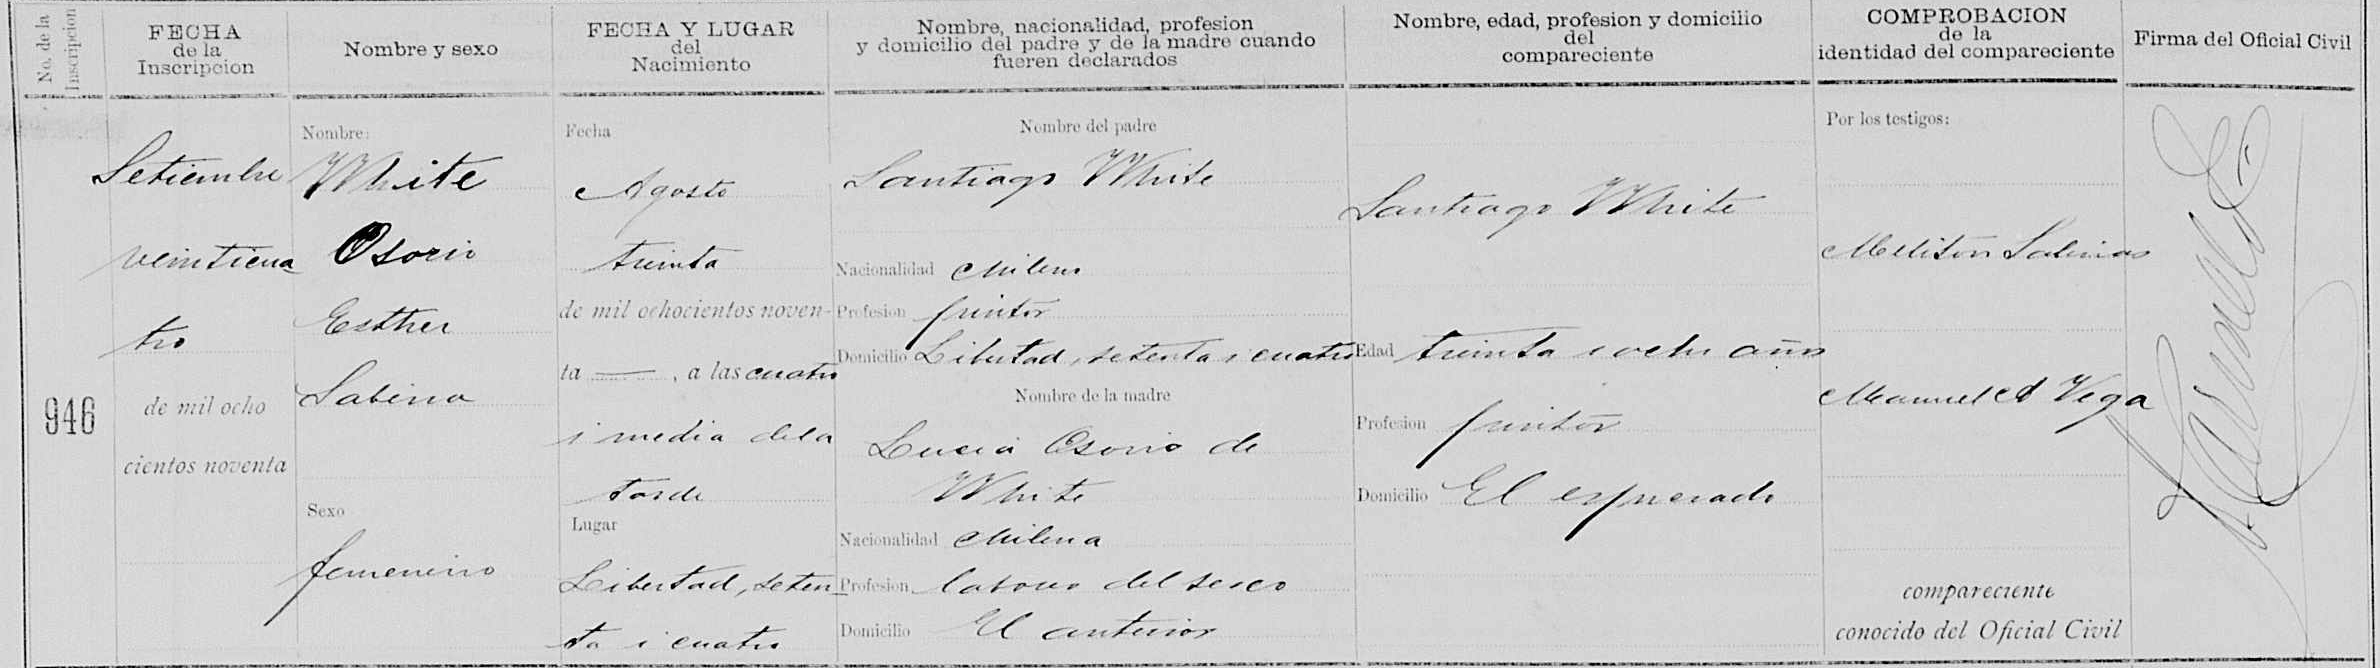 No. de la
Inscripcion
FECHA
de la
Inscripcion
Nombre y sexo
FECHA Y LUGAR
del
Nacimiento
Nombre, nacionalidad, profesion
y domicilio del padre y de la madre cuando
fueren declarados
Nombre, edad, profesion y domicilio
del
compareciente
COMPROBACION
de la
identidad del compareciente
Firma del Oficial Civil
946
Setiembre
veinticua
tro
de mil ocho
cientos noventa
Nombre:
White
Osorio
Esther
Sabina
Sexo
femenino
Fecha
Agosto
treinta
de mil ochocientos noven-
ta — , a las cuatro
i media de la
tarde
Lugar
Libertad, seten
ta i cuatro
Nombre del padre
Santiago White
Nacionalidad chileno
Profesion pintor
Domicilio Libertad, setenta i cuatro
Nombre de la madre
Lucia Osorio de
White
Nacionalidad chilena
Profesion labores del secso
Domicilio El anterior
Santiago White
Edad treinta i ocho años
Profesion pintor
Domicilio El espresado
Por los testigos:
Meliton Salinas
Manuel A Vega
compareciente
conocido del Oficial Civil